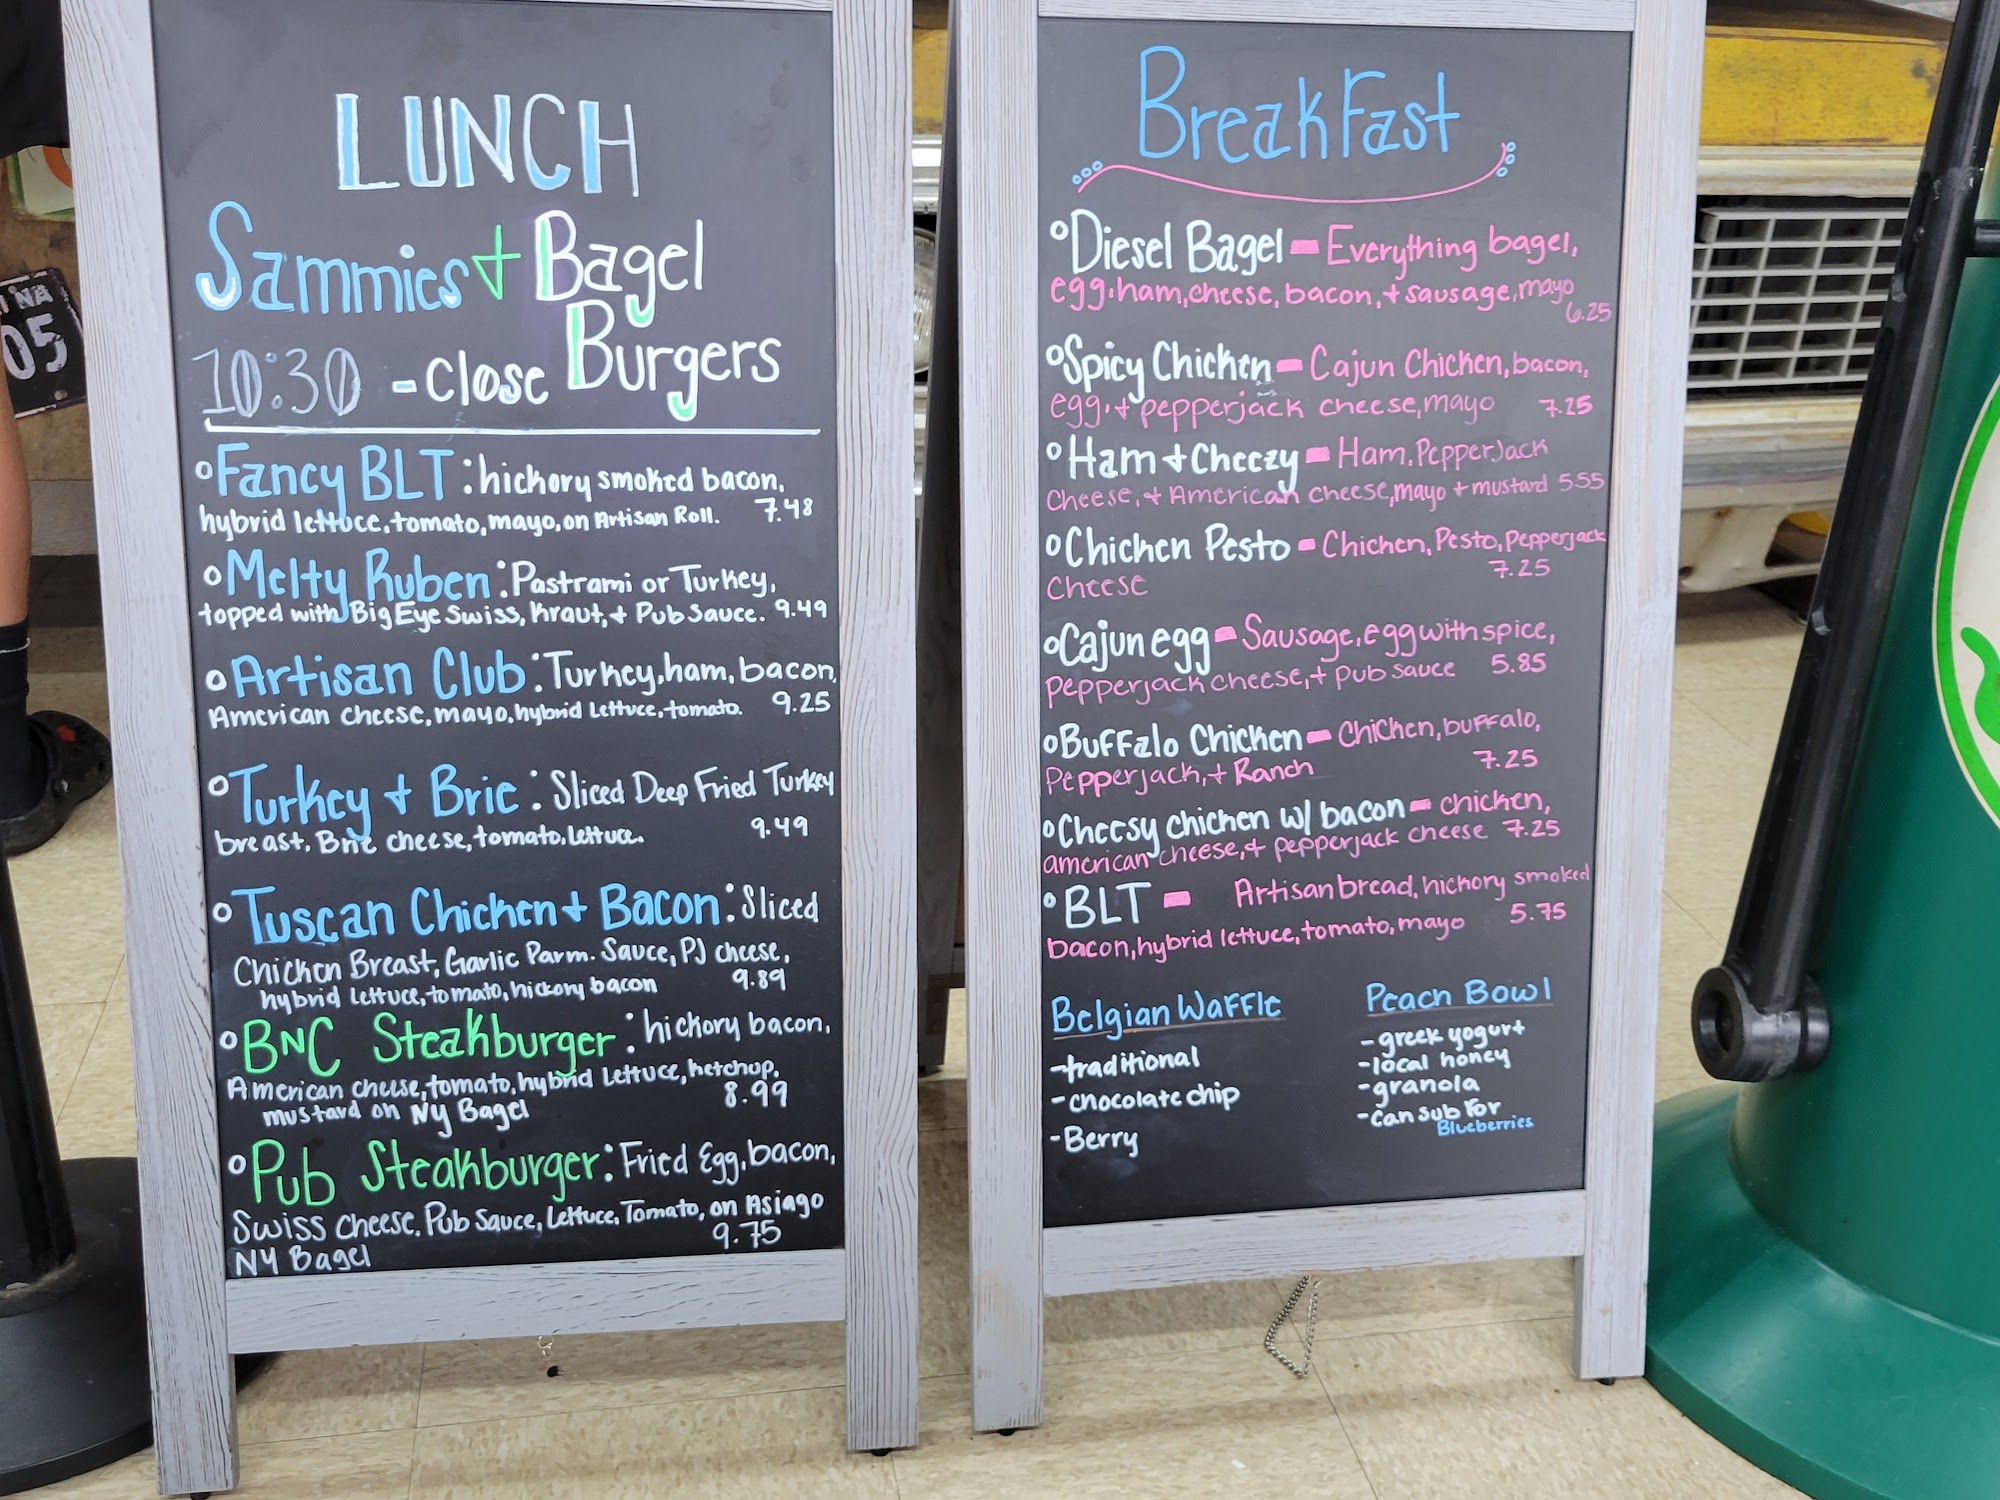 LUNCH
Sammies + Bagel
Burgers
10:30 - Close
Fancy BLT: hickory smoked bacon,
hybrid lettuce, tomato, mayo, on Artisan Roll. 7.48
Melty Ruben: Pastrami or Turkey,
topped with Big Eye Swiss, Kraut, + Pub Sauce. 9.49
Artisan Club: Turkey, ham, bacon,
American cheese, mayo, hybrid lettuce, tomato. 9.25
Turkey + Brie: Sliced Deep Fried Turkey
breast, Brie cheese, tomato, lettuce. 9.49
Tuscan Chicken + Bacon: Sliced
Chicken Breast, Garlic Parm. Sauce, PJ cheese,
hybrid lettuce, tomato, hickory bacon 9.89
BNC Steakburger: hickory bacon,
American cheese, tomato, hybrid Lettuce, ketchup,
mustard on NY Bagel 8.99
Pub Steakburger: Fried Egg, bacon,
Swiss cheese, Pub Sauce, Lettuce, Tomato, on Asiago
NY Bagel 9.75
BreakFast
Diesel Bagel - Everything bagel,
egg, ham, cheese, bacon, + sausage, mayo
6.25
Spicy Chicken - Cajun Chicken, bacon,
egg, + pepperjack cheese, mayo 7.25
Ham + Cheezy - Ham, PepperJack
cheese, + American cheese, mayo + mustard 5.55
Chicken Pesto - Chicken, Pesto, Pepperjack
Cheese 7.25
Cajun egg - Sausage, egg with spice,
pepperjack cheese, + pub sauce 5.85
Buffalo Chicken - Chicken, buffalo,
Pepperjack, + Ranch 7.25
Cheesy chicken w/ bacon - chicken,
american cheese, + pepperjack cheese 7.25
BLT - Artisan bread, hickory smoked
bacon, hybrid lettuce, tomato, mayo 5.75
Belgian Waffle
-traditional
-chocolate chip
-Berry
Peach Bowl
-greek yogurt
-local honey
-granola
-can sub for
Blueberries
05